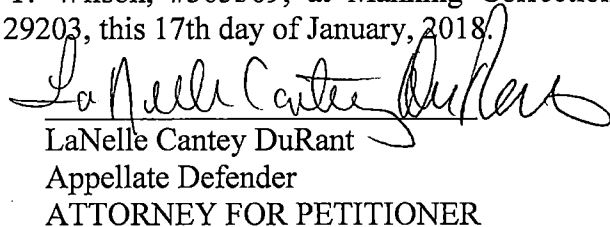 29203, this 17th day of January, 2018.
LaNelle Cantey DuRant
LaNelle Cantey DuRant
Appellate Defender
ATTORNEY FOR PETITIONER